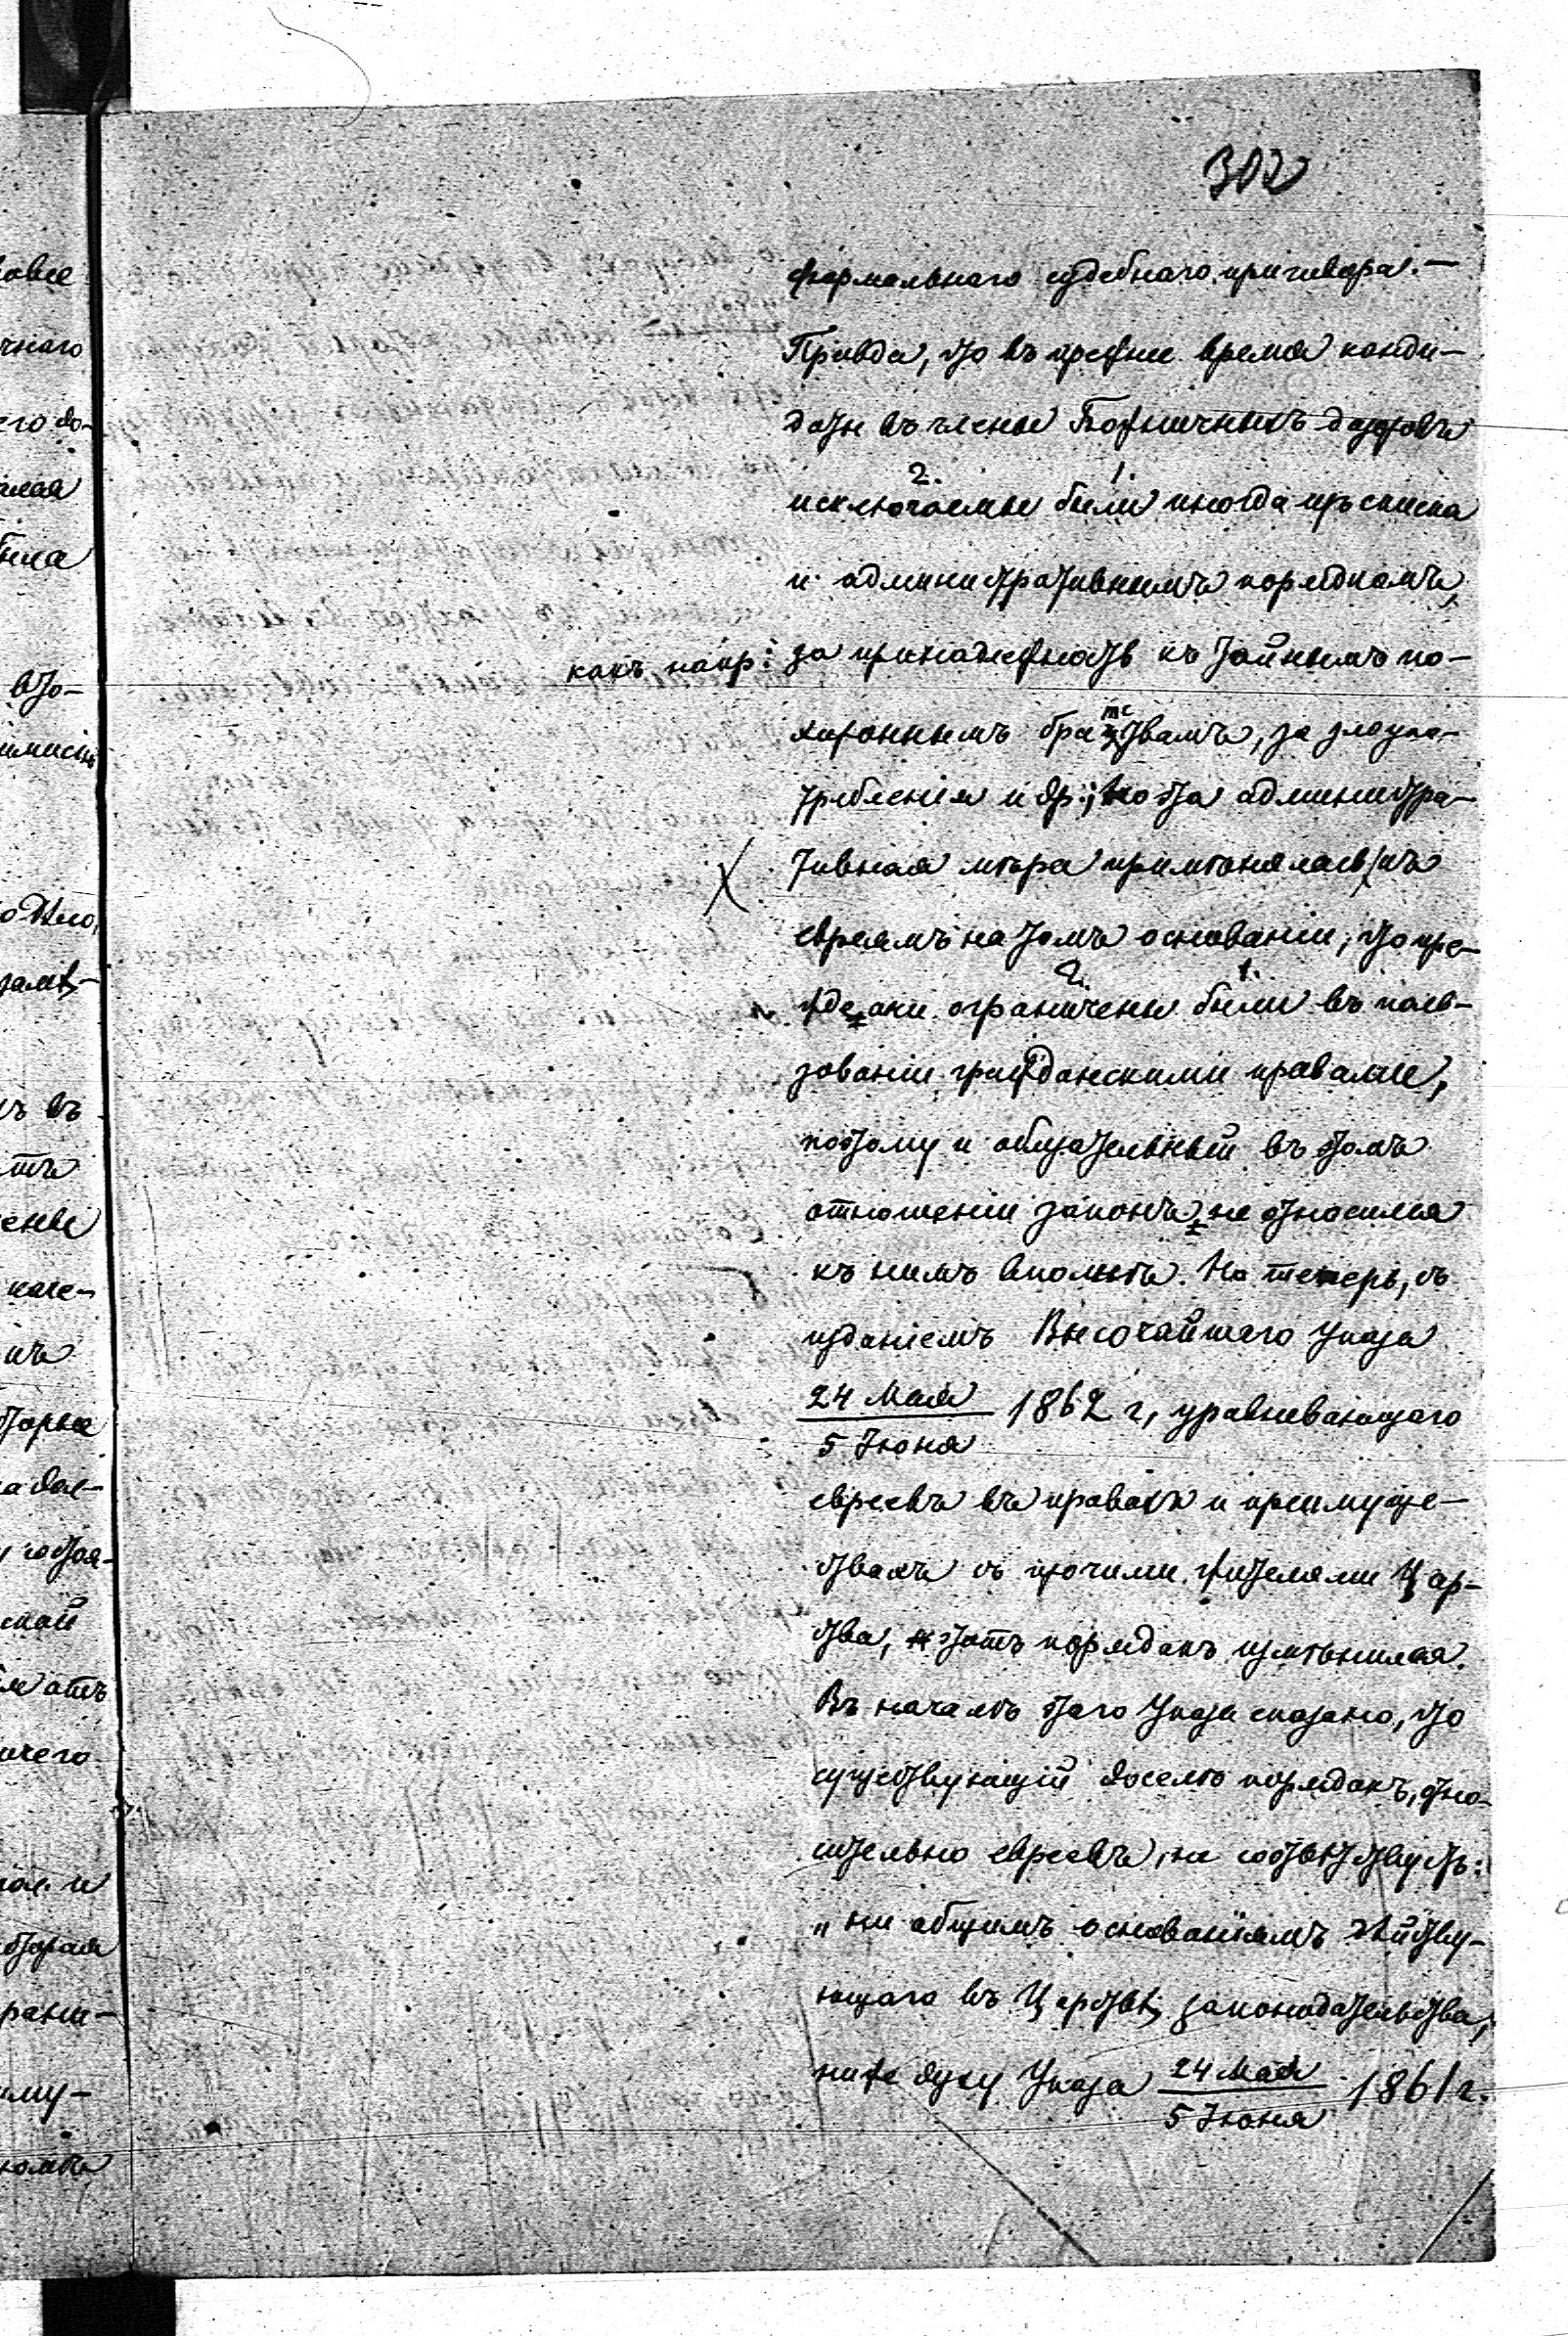 302
формальнаго судебнаго приговора.—
Правда, что въ прежнее время канди-
даты въ члены Божничныхъ дозоровъ
2. 1.
исключаемы были иногда изъ списка
и административнымъ порядкомъ,
какъ напр: за принадлежность къ тайнымъ по-
хороннымъ братствамъ, за злоупо-
требленія и др.; но эта администра-
тивная мѣра примѣнялась къ
евреямъ на томъ основаніи, что пре-
2. 1.
жде они ограничены были въ поль-
зованіи гражданскими правами,
поэтому и обязательный въ этомъ
отношеніи законъ, не относился
къ нимъ вполнѣ. Но теперь, съ
изданіемъ Высочайшаго Указа
24 Мая / 5 Іюня 1862 г, уравнивающаго
евреевъ въ правахъ и преимуще-
ствахъ съ прочими жителями Цар-
ства, этотъ порядокъ измѣнился.
Въ началѣ этаго Указа сказано, что
существующій доселѣ порядокъ, отно-
сительно евреевъ, не соотвѣтствуетъ:
„ни общимъ основаніямъ дѣйству-
ющаго въ Царствѣ законодательства,
ниже духу Указа 24 Мая / 5 Іюня 1861 г.